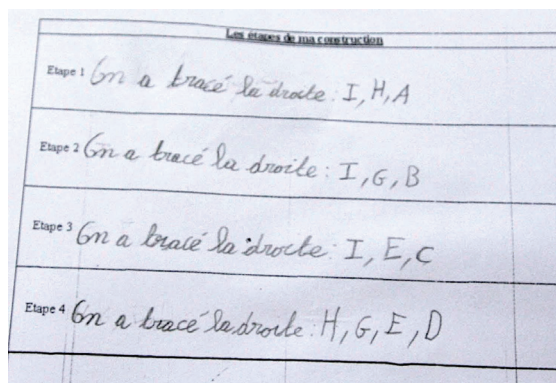 Les étapes de ma construction
Etape 1 On a tracé la droite : I, H, A
Etape 2 On a tracé la droite : I, G, B
Etape 3 On a tracé la droite : I, E, C
Etape 4 On a tracé la droite : H, G, E, D